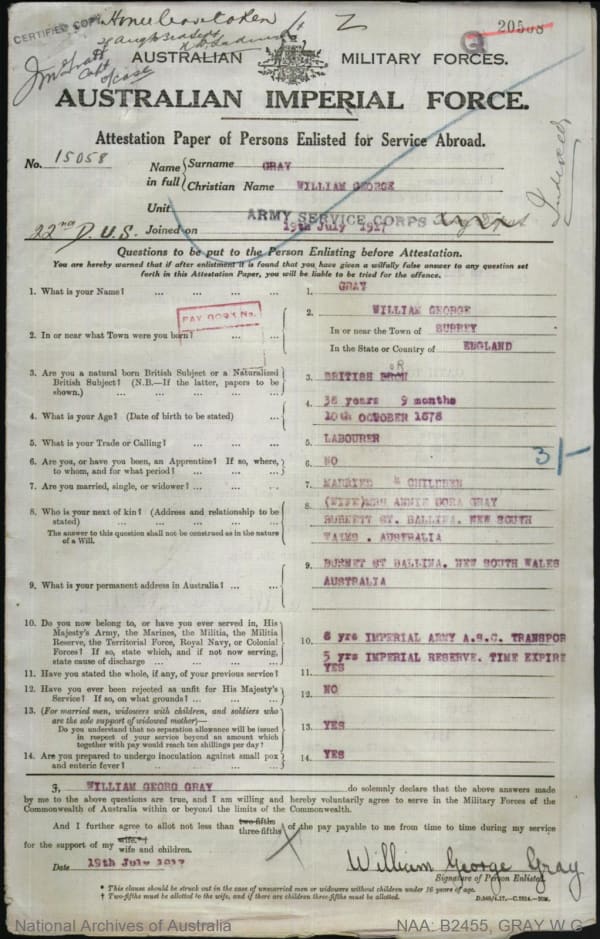 CERTIFIED COPY
Z
20508
AUSTRALIAN MILITARY FORCES.
AUSTRALIAN IMPERIAL FORCE.
Attestation Paper of Persons Enlisted for Service Abroad.
No. 15058
Name in full { Surname GRAY
Christian Name WILLIAM GEORGE
Indexed
Unit ARMY SERVICE CORPS
22nd D.U.S. Joined on 19th July 1917
Questions to be put to the Person Enlisting before Attestation.
You are hereby warned that if after enlistment it is found that you have given a wilfully false answer to any question set
forth in this Attestation Paper, you will be liable to be tried for the offence.
1. What is your Name? ... ... ... ... 1. GRAY
2. WILLIAM GEORGE
PAY BOOK No.
2. In or near what Town were you born? ... ... In or near the Town of SURREY
In the State or Country of ENGLAND
3. Are you a natural born British Subject or a Naturalized
British Subject? (N.B.—If the latter, papers to be
shown.) ... ... ... ... ... 3. BRITISH BORN
4. What is your Age? (Date of birth to be stated) ... 4. 38 years 9 months
10th OCTOBER 1878
5. What is your Trade or Calling? ... ... ... 5. LABOURER
3/-
6. Are you, or have you been, an Apprentice? If so, where,
to whom, and for what period? ... ... ... 6. NO
7. Are you married, single, or widower? ... ... ... 7. MARRIED 4 CHILDREN
8. Who is your next of kin? (Address and relationship to be
stated) ... ... ... ... ... 8. (WIFE) MRS ANNIE DORA GRAY
The answer to this question shall not be construed as in the nature
of a Will.
BURNETT ST. BALLINA. NEW SOUTH
WALES . AUSTRALIA
9. What is your permanent address in Australia? ... ... 9. BURNET ST BALLINA. NEW SOUTH WALES
AUSTRALIA
10. Do you now belong to, or have you ever served in, His
Majesty's Army, the Marines, the Militia, the Militia
Reserve, the Territorial Force, Royal Navy, or Colonial
Forces? If so, state which, and if not now serving,
state cause of discharge ... ... ... ... 10. 8 yrs IMPERIAL ARMY A.S.C. TRANSPOR
5 yrs IMPERIAL RESERVE. TIME EXPIRE
11. Have you stated the whole, if any, of your previous service? 11. YES
12. Have you ever been rejected as unfit for His Majesty's
Service? If so, on what grounds? ... ... ... 12. NO
13. (For married men, widowers with children, and soldiers who
are the sole support of widowed mother)—
Do you understand that no separation allowance will be issued
in respect of your service beyond an amount which
together with pay would reach ten shillings per day? 13. YES
14. Are you prepared to undergo inoculation against small pox
and enteric fever? ... ... ... ... 14. YES
I, WILLIAM GEORG GRAY do solemnly declare that the above answers made
by me to the above questions are true, and I am willing and hereby voluntarily agree to serve in the Military Forces of the
Commonwealth of Australia within or beyond the limits of the Commonwealth.
And I further agree to allot not less than two-fifths three-fifths of the pay payable to me from time to time during my service
for the support of my wife.* wife and children.
Date 19th July 1917
William George Gray
Signature of Person Enlisted.
* This clause should be struck out in the case of unmarried men or widowers without children under 16 years of age.
† Two-fifths must be allotted to the wife, and if there are children three-fifths must be allotted.
National Archives of Australia
NAA: B2455, GRAY W G